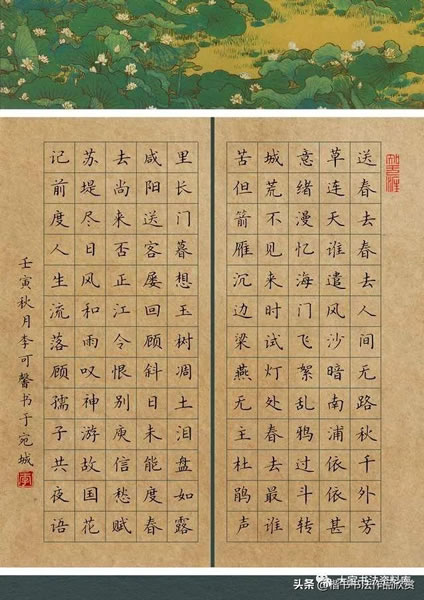 送春去春去人间无路秋千外芳
草连天谁遣风沙暗南浦依依甚
意绪漫忆海门飞絮乱鸦过斗转
城荒不见来时试灯处春去最谁
苦但箭雁沉边梁燕无主杜鹃声
里长门暮想玉树凋土泪盘如露
咸阳送客屡回顾斜日未能度春
去尚来否正江令恨别庾信愁赋
苏堤尽日风和雨叹神游故国花
记前度人生流落顾孺子共夜语
壬寅秋月李可馨书于宛城
头条 @楷书书法作品欣赏